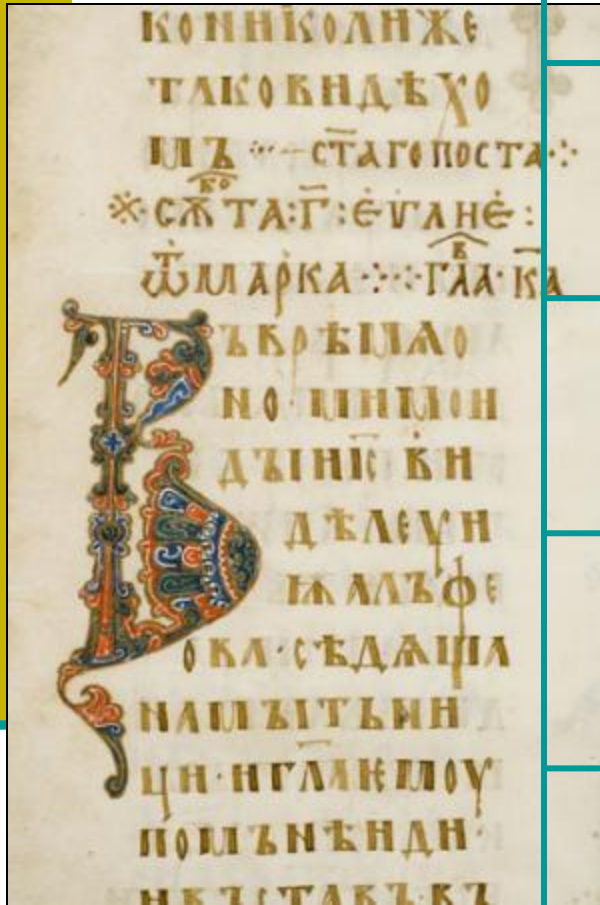 КОНИКОЛИЖЕ
ТАКОВИДѢХО
МЪ ⁘ – СТ҃АГОПОСТА⁘
※ СѪбоТА:Г҃:ЕѴАНЕ:
ѾМАРКА ⁘ ГЛАв·К҃А
ВЪВРѢМѦО
НО·МИМОИ
ДЪІИІ҃С ВИ
ДѢЛЕѴИ
ѬАЛЪФЕ
ОВА·СѢДѦЩА
НАМЪІТЬНИ
ЦИ·ИГЛ҃АѤМОУ
ПОМЬНѢИДИ·
ИВЪСТАВЪ·ВЪ